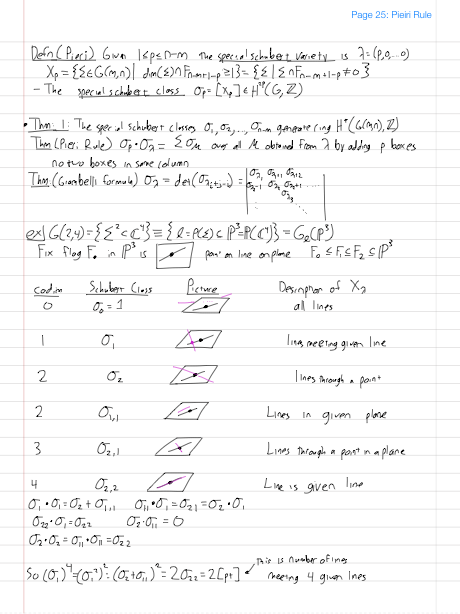 Page 25: Pieiri Rule
Defn (Pieri) Given 1≤p≤n-m the special schubert variety is λ=(p,0,..0)
X_p = {Σ∈G(m,n)| dim(Σ)∩F_{n-m+1-p} ≥1} = {Σ | Σ∩F_{n-m+1-p}≠0}
- The special schubert class σ_p = [X_p] ∈ H^{2p}(G, Z)
• Thm: 1: The special schubert classes σ_1, σ_2, ..., σ_{n-m} generate ring H*(G(m,n), Z)
Thm (Pieri Rule) σ_p·σ_λ = Σ σ_μ over all μ obtained from λ by adding p boxes
no two boxes in same column
Thm: (Giambelli formula) σ_λ = det(σ_{λ_i+j-i}) =
ex| G(2,4) = {Σ² < C⁴} ≡ {ℓ = P(Σ) ⊂ P³ = P(C⁴)} = G_ℓ(P³)
Fix flag F. in P³ is point on line on plane F_0 ≤ F_1 ≤ F_2 ≤ P³
codim Schubert Class Picture Description of X_λ
0 σ_0 = 1 all lines
1 σ_1 lines meeting given line
2 σ_2 lines through a point
2 σ_{1,1} Lines in given plane
3 σ_{2,1} Lines through a point in a plane
4 σ_{2,2} Line is given line
σ_1·σ_1 = σ_2 + σ_{1,1} σ_{11}·σ_1 = σ_{21} = σ_2·σ_1
σ_{22}·σ_1 = σ_{22} σ_2·σ_{11} = 0
σ_2·σ_2 = σ_{11}·σ_{11} = σ_{22}
So (σ_1)⁴ = (σ_1²)² = (σ_2+σ_{11})² = 2σ_{22} = 2[pt]
This is number of lines
meeting 4 given lines